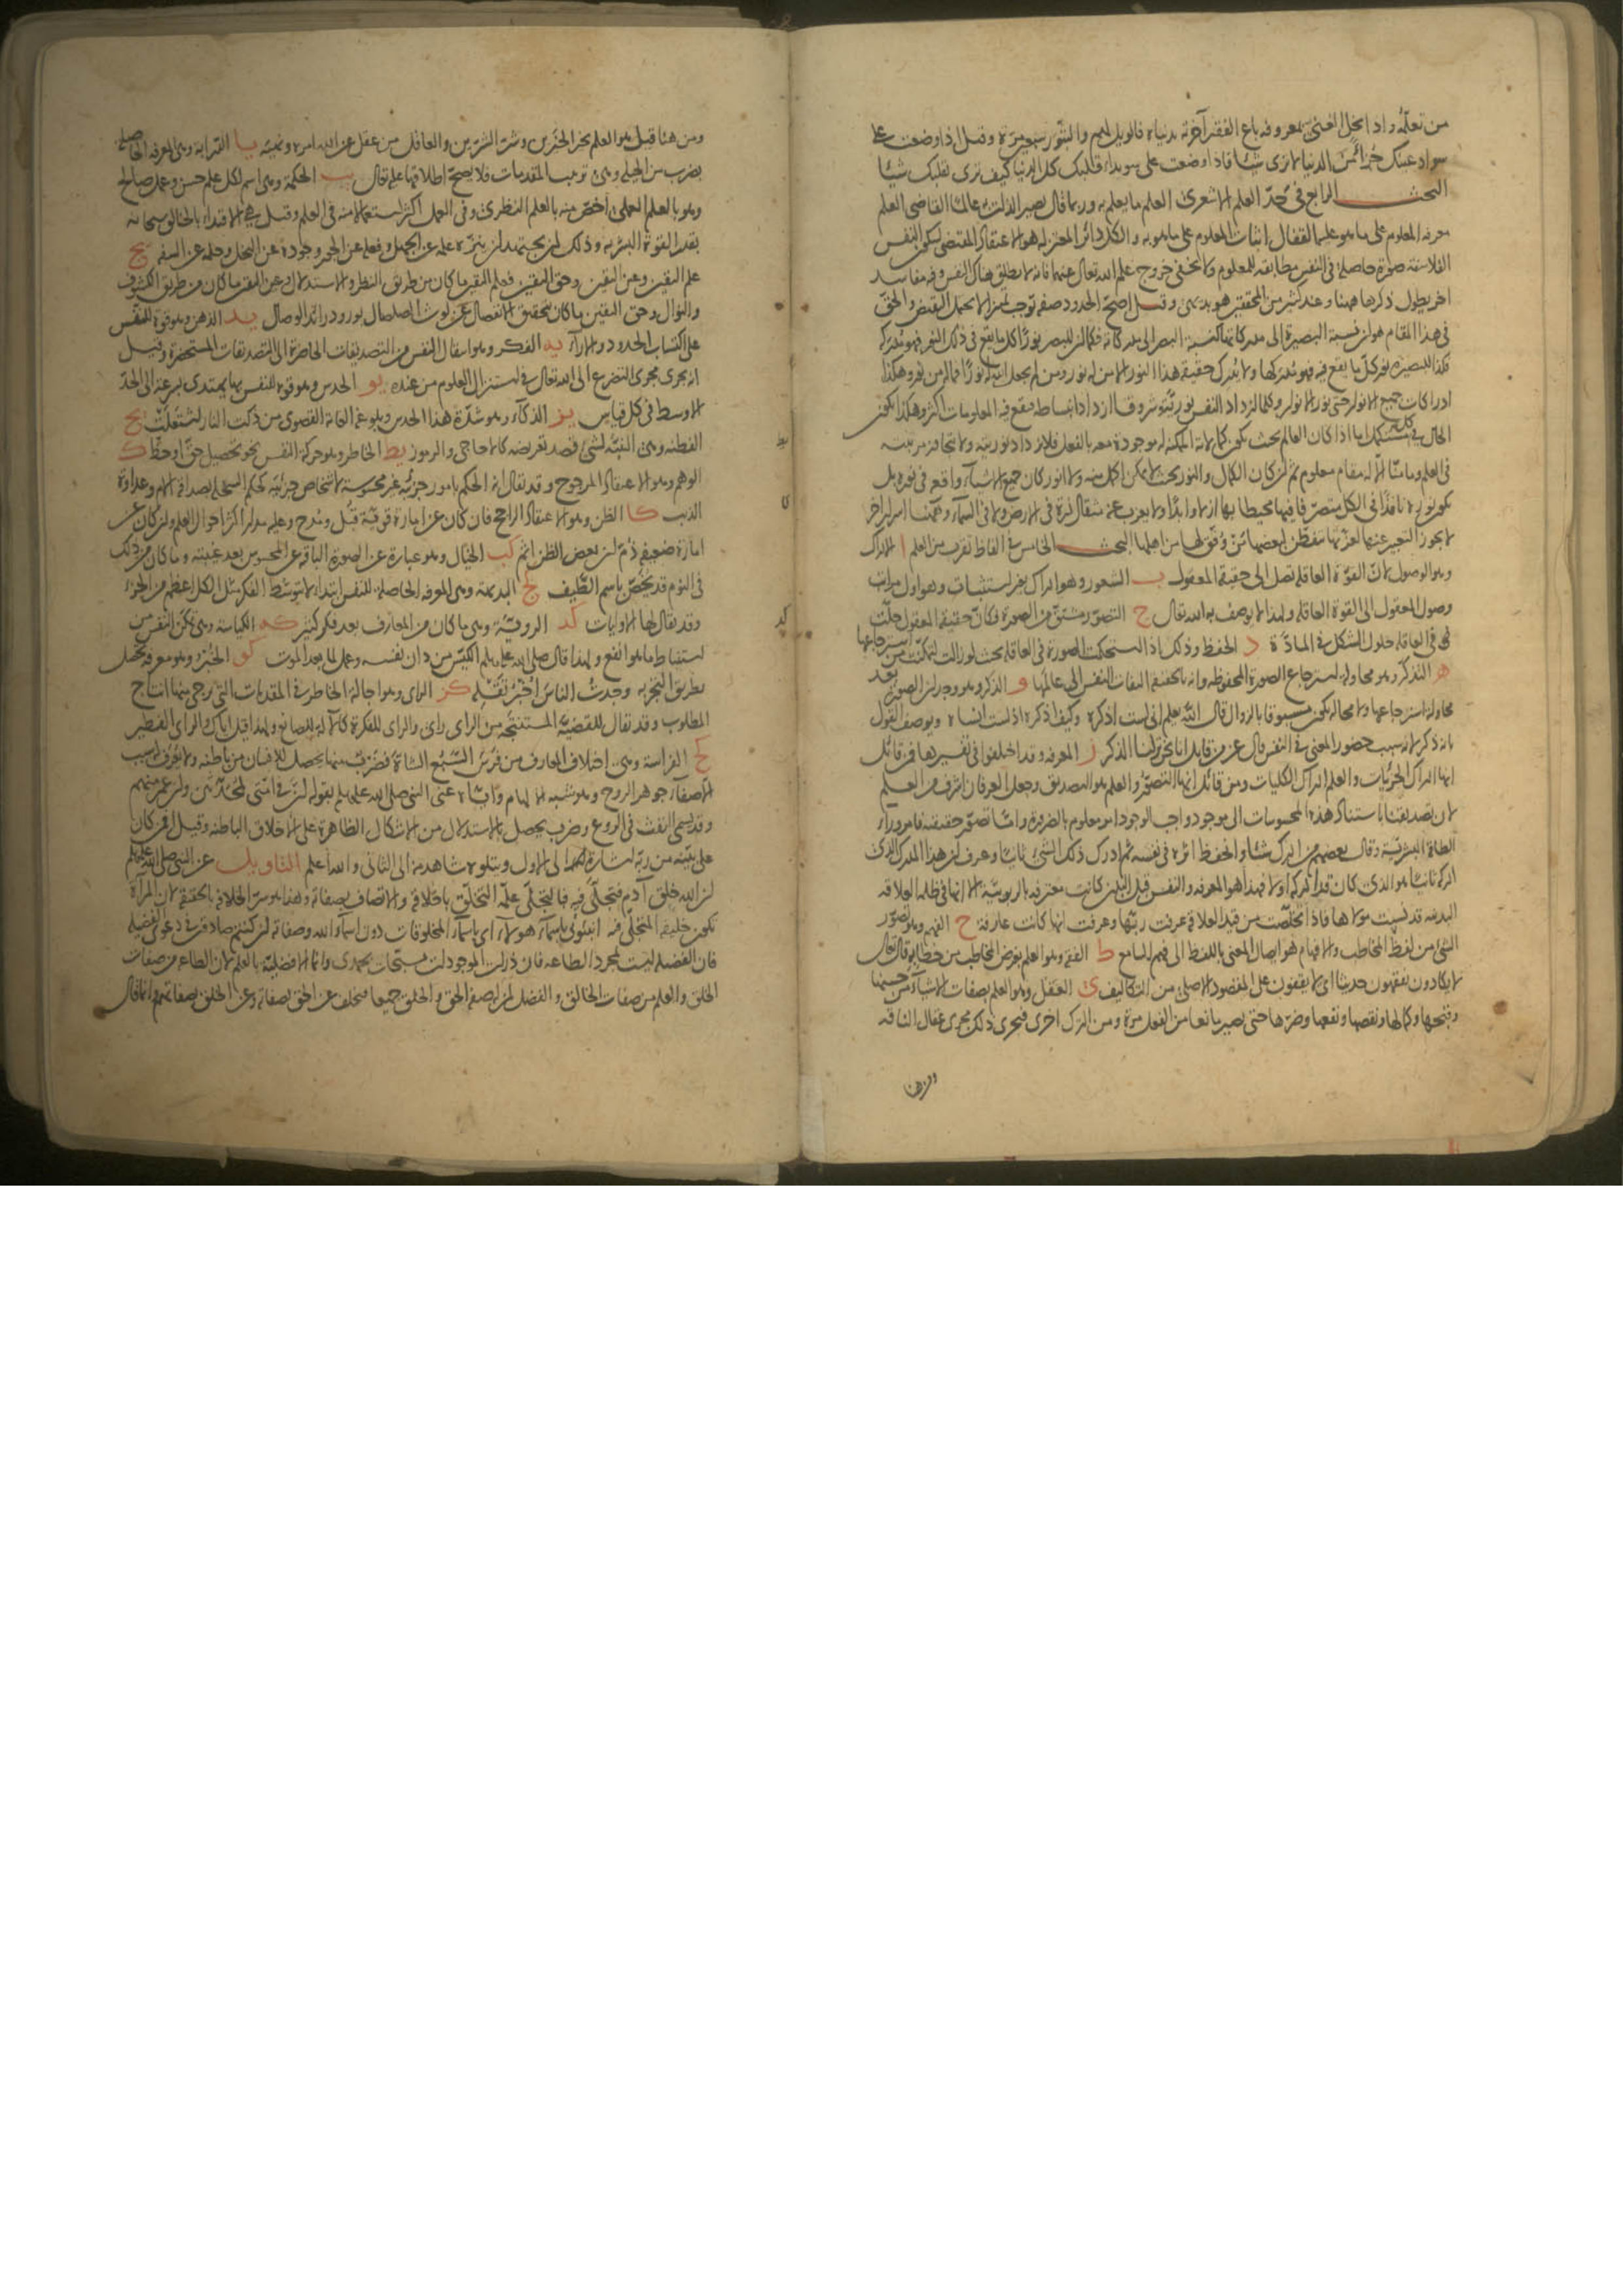 من تعلمه واذا بخل الغنى بمعروفه باع الفقير آخرته بدنياه فالويل لهم والثبور سبعين مرة وقيل اذا وضعت على
سواد عينك جزأ من الدنيا لا ترى شيئا فاذا وضعت على سويداء قلبك كل الدنيا كيف ترى بقلبك شيئا
البحث الرابع في حد العلم الاشعرى العلم ما يعلم به وربما قال يصير الذات به عالما القاضى العلم
معرفة المعلوم على ما هو عليه القفال اثبات المعلوم على ما هو به والكل دائر المعتزلة هو الاعتقاد المقتضى لسكون النفس
الفلاسفة صورة حاصلة في النفس مطابقة للمعلوم ولا يخفى خروج علم الله تعالى عنهما فانه لا يطلق هناك النفس وفيه مفاسد
اخر يطول ذكرها ههنا وعند كثير من المحققين هو بديهى وقيل اصح الحدود صفة توجب تمييزا لا يحتمل النقيض والحق
في هذا المقام هو ان نسبة البصيرة الى مدركاتها كنسبة البصر الى مدركاته فكما ان للبصر نورا كل ما يقع في ذلك النور فهو مدركه
فكذا للبصيرة نور كل ما يقع فيه فهو مدركها ولا يدرك حقيقة هذا النور الا من له نور ومن لم يجعل الله له نورا فما له من نور وهكذا
ادراكات جميع الانوار حتى نور الانوار وكلما ازداد النفس نورية وشروقا ازداد انبساطه فيقع فيه المعلومات اكثر وهكذا يكون
الحال في كل مستكمل اما اذا كان العالم بحيث يكون كمالاته الممكنة له موجودة معه بالفعل فلا يزداد نوريته ولا يتجاوز مرتبته
في العلم وما منا الا له مقام معلوم ثم ان كان الكمال والنور بحيث لا يمكن اكمل منه ولا انور كان جميع الاشياء واقعه في نوره بل
يكون نوره نافذا في الكل متصرفا فيها محيطا بها ازلا وابدا ولا يعزب عنه مثقال ذرة في الارض ولا في السماء وههنا اسرار اخر
لا يجوز التعبير عنها لعزتها تتفطن لبعضها ان وفق لها من اهلها البحث الخامس في الفاظ تقرب من العلم ا الادراك
وهو الوصول لان القوة العاقلة تصل الى حقيقة المعقول ب الشعور وهو ادراك بغير استثبات وهو اول مراتب
وصول المعقول الى القوة العاقلة ولهذا لا يوصف به الله تعالى ج التصور مشتق من الصورة فكان حقيقة المعقول حلت
في العاقلة حلول الشكل في المادة د الحفظ وذلك اذا استحكمت الصورة في العاقلة بحيث لو زالت لتمكنت من استرجاعها
ه التذكر وهو محاولة استرجاع الصورة المحفوظة وانه بالحقيقة التفات النفس الى عالمها و الذكر وهو وجدان الصورة بعد
محاولة استرجاعها ولا محالة يكون مسبوقا بالزوال قال الله يعلم انى لست اذكره وكيف اذكره اذ لست انساه ويوصف القول
بانه ذكر لانه سبب حضور المعنى في النفس قال عز من قايل انا نحن نزلنا الذكر ز المعرفة وقد اختلفوا في تفسيرها فمن قائل
انها ادراك الجزئيات والعلم ادراك الكليات ومن قائل انها التصور والعلم هو التصديق وجعل العرفان اشرف من العلم
لان تصديقنا باستناد هذه المحسوسات الى موجود واجب الوجود امر معلوم بالضرورة واما تصور حقيقته فامر وراء
الطاقة البشرية وقال بعضهم من ادرك شيئا وانحفظ اثره في نفسه ثم ادرك ذلك الشئ ثانيا وعرف ان هذا المدرك الذى
ادركه ثانيا هو الذى كان قد ادركه اولا فهذا هو المعرفة والنفس قبل البدن كانت معترفة بالربوبية الا انها في ظلمة العلاقة
البدنية قد نسيت مولاها فاذا تخلصت من قيد العلاقة عرفت ربها وعرفت انها كانت عارفة ح الفهم وهو تصور
الشئ من لفظ المخاطب والافهام هو ايصال المعنى باللفظ الى فهم السامع ط الفقه وهو العلم بغرض المخاطب من خطابه قال تعالى
لا يكادون يفقهون حديثا اى لا يقفون على المقصود الاصلى من التكاليف ى العقل وهو العلم بصفات الاشياء من حسنها
وقبحها وكمالها ونقصها ونفعها وضرها حتى يصير مانعا من الفعل مرة ومن الترك اخرى فيجرى ذلك مجرى عقال الناقة
ومن هنا
ومن هنا قيل هو العلم بخير الخيرين وشر الشرين والعاقل من عقل عن الله امره ونهيه يا الدراية وهى المعرفة الحاصلة
بضرب من الحيلة وهى ترتيب المقدمات فلا يصح اطلاقها عليه تعالى يب الحكمة وهى اسم لكل علم حسن وعمل صالح
وهو بالعلم العملى اخص منه بالعلم النظرى وفي العمل اكثر استعمالا منه في العلم وقيل هي الاقتداء بالخالق سبحانه
بقدر القوة البشرية وذلك ان يجتهد ان ينزه علمه عن الجهل وفعله عن الجور وجوده عن البخل وحلمه عن السفه يج
علم اليقين وعين اليقين وحق اليقين فعلم اليقين ما كان من طريق النظر والاستدلال وعين اليقين ما كان من طريق الكشوف
والنوال وحق اليقين ما كان بتحقيق الانفصال عن لوث الصلصال بورود رائد الوصال يد الذهن وهو قوة للنفس
على اكتساب الحدود والاراء يه الفكر وهو انتقال النفس من التصديقات الحاضرة الى التصديقات المستحضرة وقيل
انه يجرى مجرى التضرع الى الله تعالى في استنزال العلوم من عنده يو الحدس وهو قوة للنفس بها يهتدى بسرعة الى الحد
الاوسط في كل قياس يز الذكاء وهو شدة هذا الحدس وبلوغه الغاية القصوى من ذكت النار اشتعلت يح
الفطنة وهى التنبه لشئ قصد تعريضه كالاحاجى والرموز يط الخاطر وهو حركة النفس نحو تحصيل حق او حظ ك
الوهم وهو الاعتقاد المرجوح وقد يقال انه الحكم بامور جزئية غير محسوسة لاشخاص جزئية كحكم السخلة بصداقة الام وعداوة
الذئب كا الظن وهو الاعتقاد الراجح فان كان عن امارة قوية قبل ومدح وعليه مدار اكثر احوال العلم وان كان عن
امارة ضعيفة ذم ان بعض الظن اثم كب الخيال وهو عبارة عن الصورة الباقية عن المحسوس بعد غيبته وما كان من ذلك
في النوم قد يخص باسم الطيف كج البديهة وهى المعرفة الحاصلة للنفس ابتداء لا بتوسط الفكر مثل الكل اعظم من الجزء
وقد يقال لها الاوليات كد الروية وهى ما كان من المعارف بعد فكر كثير كه الكياسة وهى تمكن النفس من
استنباط ما هو انفع ولهذا قال صلى الله عليه وسلم الكيس من دان نفسه وعمل لما بعد الموت كو الخبر وهو معرفة تحصل
بطريق التجربة وجدت الناس اخبر تقله كز الراى وهو اجالة الخاطر في المقدمات التى يرجى منها انتاج
المطلوب وقد يقال للقضية المستنتجة من الراى راى والراى للفكرة كالآلة للصانع ولهذا قيل اياك والراى الفطير
كح الفراسة وهى اختلاف المعارف من فرس السبع الشاة فضرب منها يحصل للانسان من باطنه ولا يعرف له سبب
الا صفاء جوهر الروح وهو شبه الالهام واياه عنى النبى صلى الله عليه وسلم بقوله ان في امتى لمحدثين وان عمر منهم
وقد يسمى النفث في الروع وضرب يحصل بالاستدلال من الاشكال الظاهرة على الاخلاق الباطنة وقيل افمن كان
على بينة من ربه اشارة الى الاول ويتلوه شاهد منه الى الثانى والله اعلم التاويل عن النبى صلى الله عليه وسلم
ان الله خلق آدم فتجلى فيه فالتجلى علة التخلق باخلاقه والاتصاف بصفاته وهذا هو سر الخلافة بالحقيقة لان المرآة
تكون خليفة المتجلى فيه انبئونى باسماء هولاء اى باسماء المخلوقات دون اسماء الله وصفاته ان كنتم صادقين في دعوى الفضيلة
فان الفضيلة ليست لمجرد الطاعة فان ذرات الموجودات مسبحات بحمدى وانما الافضلية بالعلم لان الطاعة من صفات
الخلق والعلم من صفات الخالق والفضل لمن له صفة الحق والخلق جميعا فيخلف عن الحق بصفاته وعن الخلق بصفاتهم وانما قال